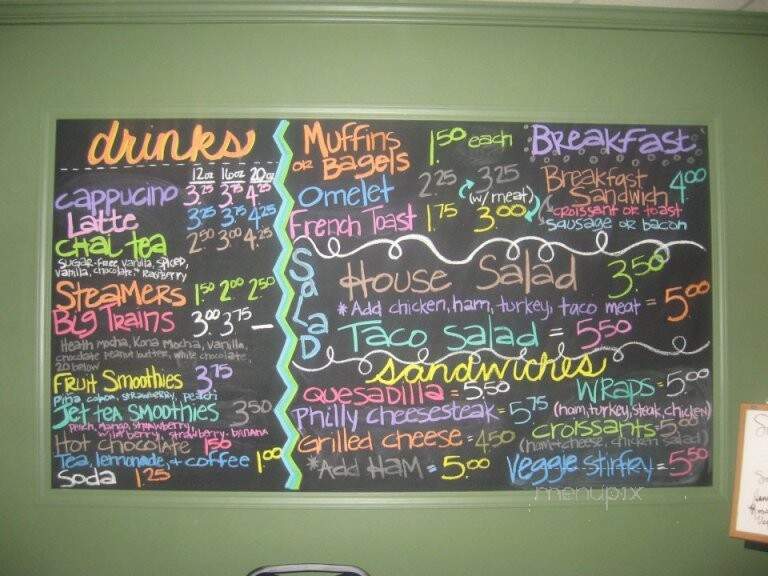 drinks
12oz 16oz 20oz
Cappucino 3.25 3.75 4.25
Latte 3.25 3.75 4.25
Chai Tea 2.50 3.00 4.25
Sugar-free vanilla, spiced,
vanilla, chocolate, Raspberry
Steamers 1.50 2.00 2.50
Big Trains 3.00 3.75 —
Heath mocha, Kona mocha, vanilla,
chocolate peanut butter, white chocolate,
20 below
Fruit Smoothies 3.75
Pina colada, strawberry, peach
Jet tea Smoothies 3.50
Peach, mango, strawberry,
wild berry, strawberry, banana
Hot chocolate 1.50
Tea, lemonade, + coffee 1.00
Soda 1.25
Muffins or Bagels 1.50 each
Omelet 2.25 3.25
(w/meat)
French Toast 1.75 3.00
Breakfast
Breakfast
Sandwich 4.00
croissant or toast
sausage or bacon
Salad
House Salad 3.50
*Add chicken, ham, turkey, taco meat = 5.00
Taco Salad = 5.50
Sandwiches
Quesadilla = 5.50
Philly cheesesteak = 5.75
Grilled cheese = 4.50
*Add Ham = 5.00
Wraps = 5.00
(ham, turkey, steak, chicken)
croissants = 5.00
(ham + cheese, chicken salad)
Veggie Stirfry = 5.50
menupix